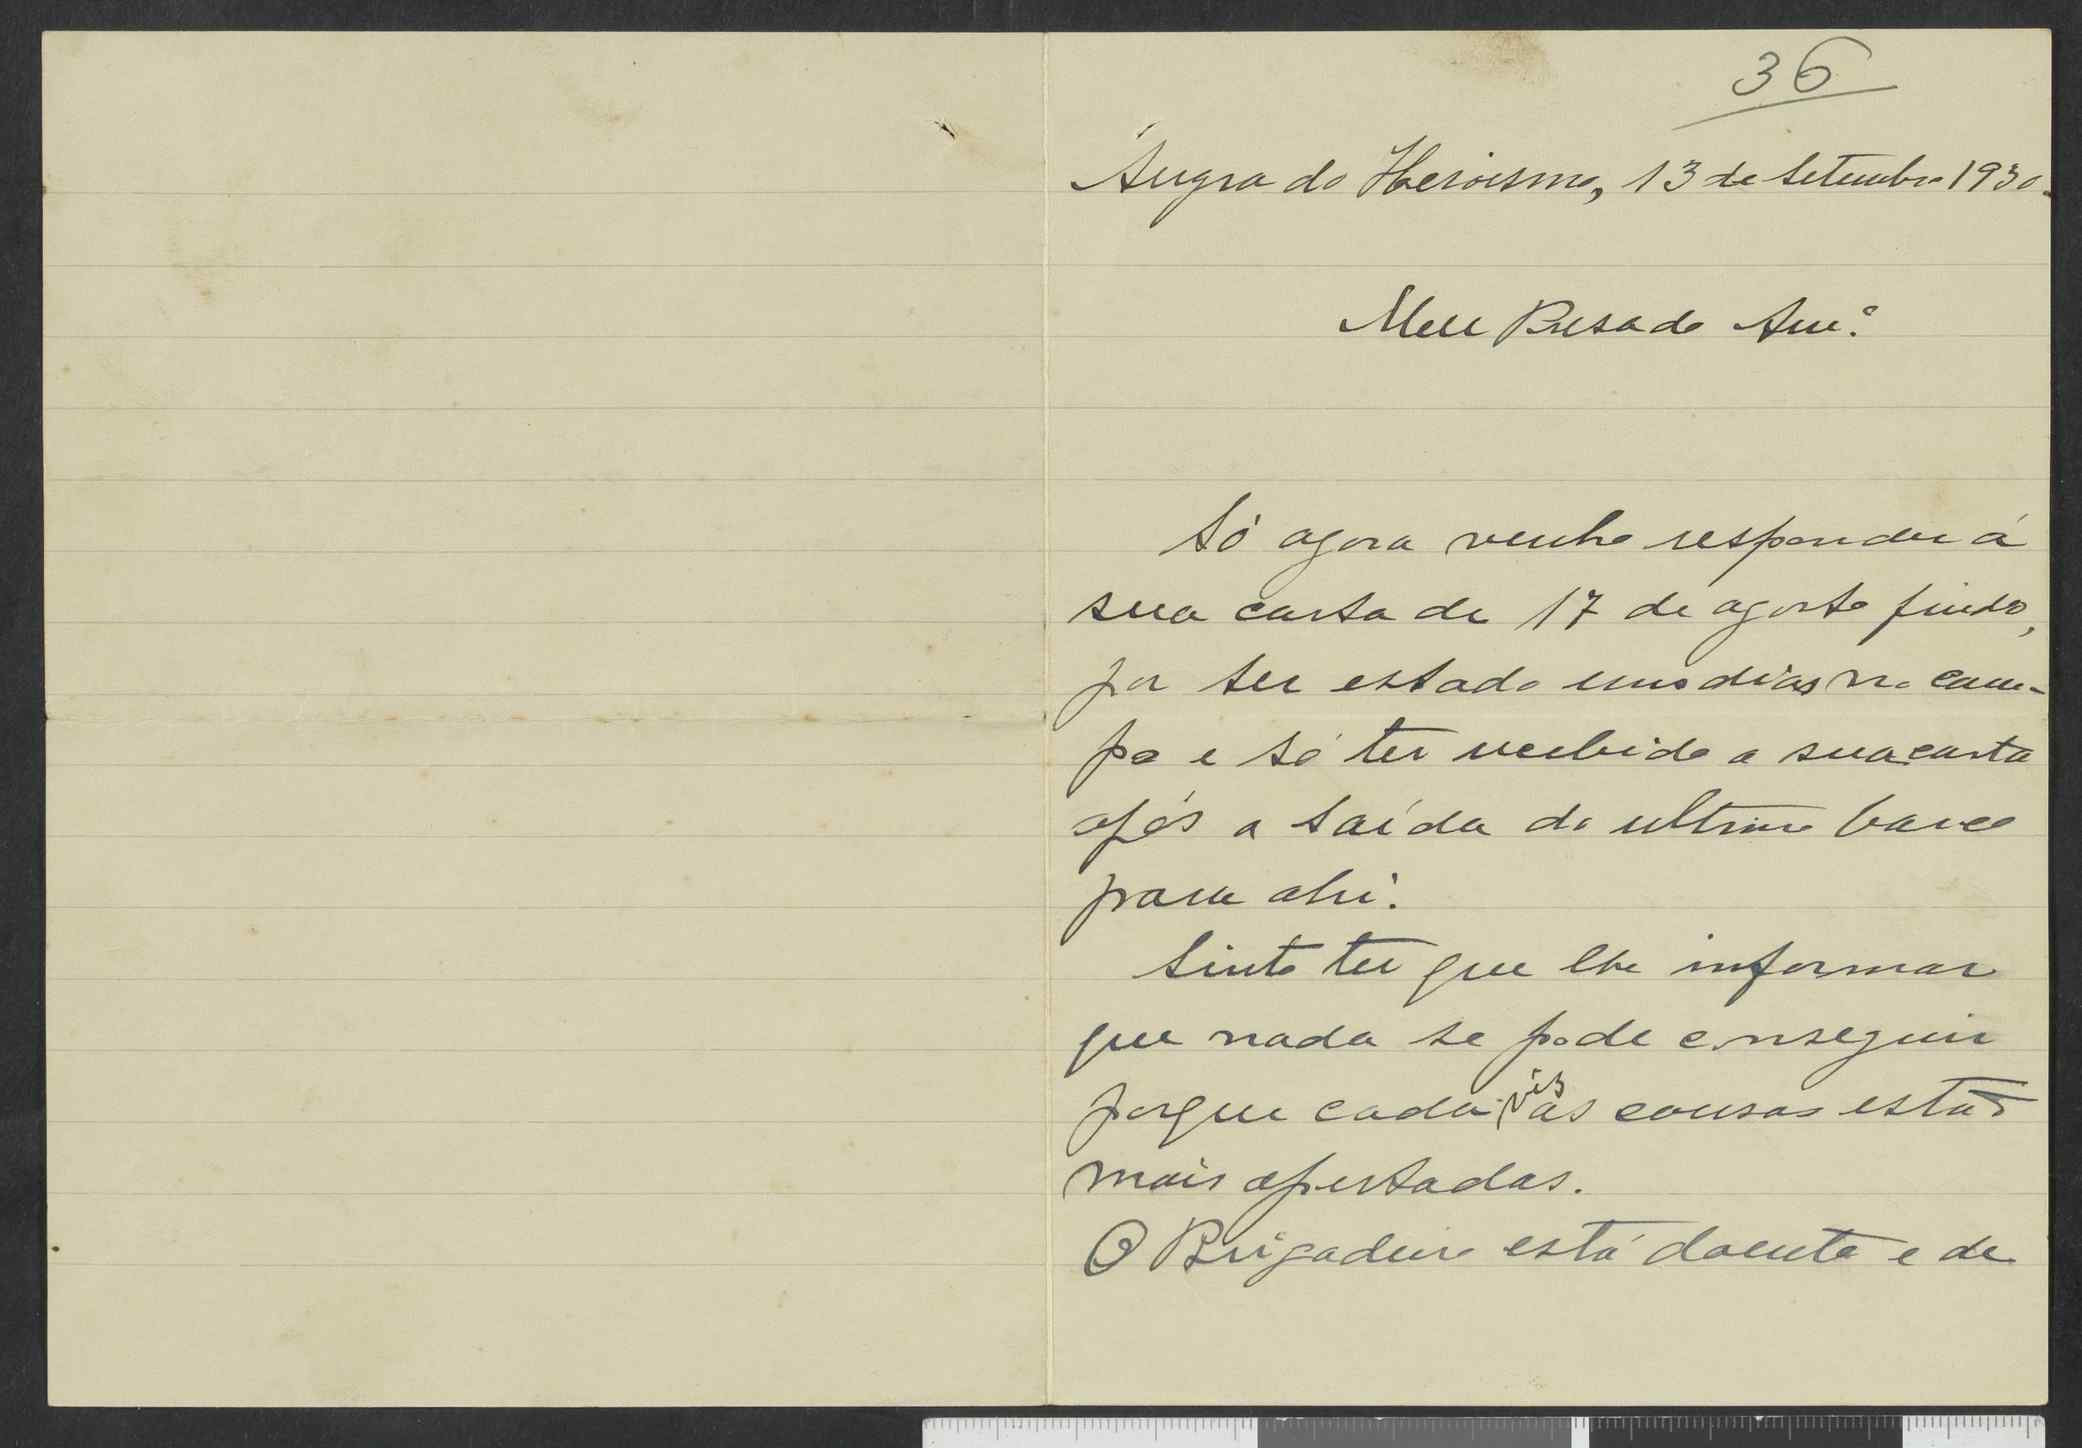 36
Angra do Heroismo, 13 de Setembro 1930.
Meu Presado Amº
Só agora venho responder á
sua carta de 17 de agosto findo,
por ter estado uns dias no cam-
po e só ter recebido a sua carta
após a saída do ultimo barco
para ahi.
Sinto ter que lhe informar
que nada se pode conseguir
porque cada vês as cousas estão
mais apertadas.
O Brigadeiro está doente e de